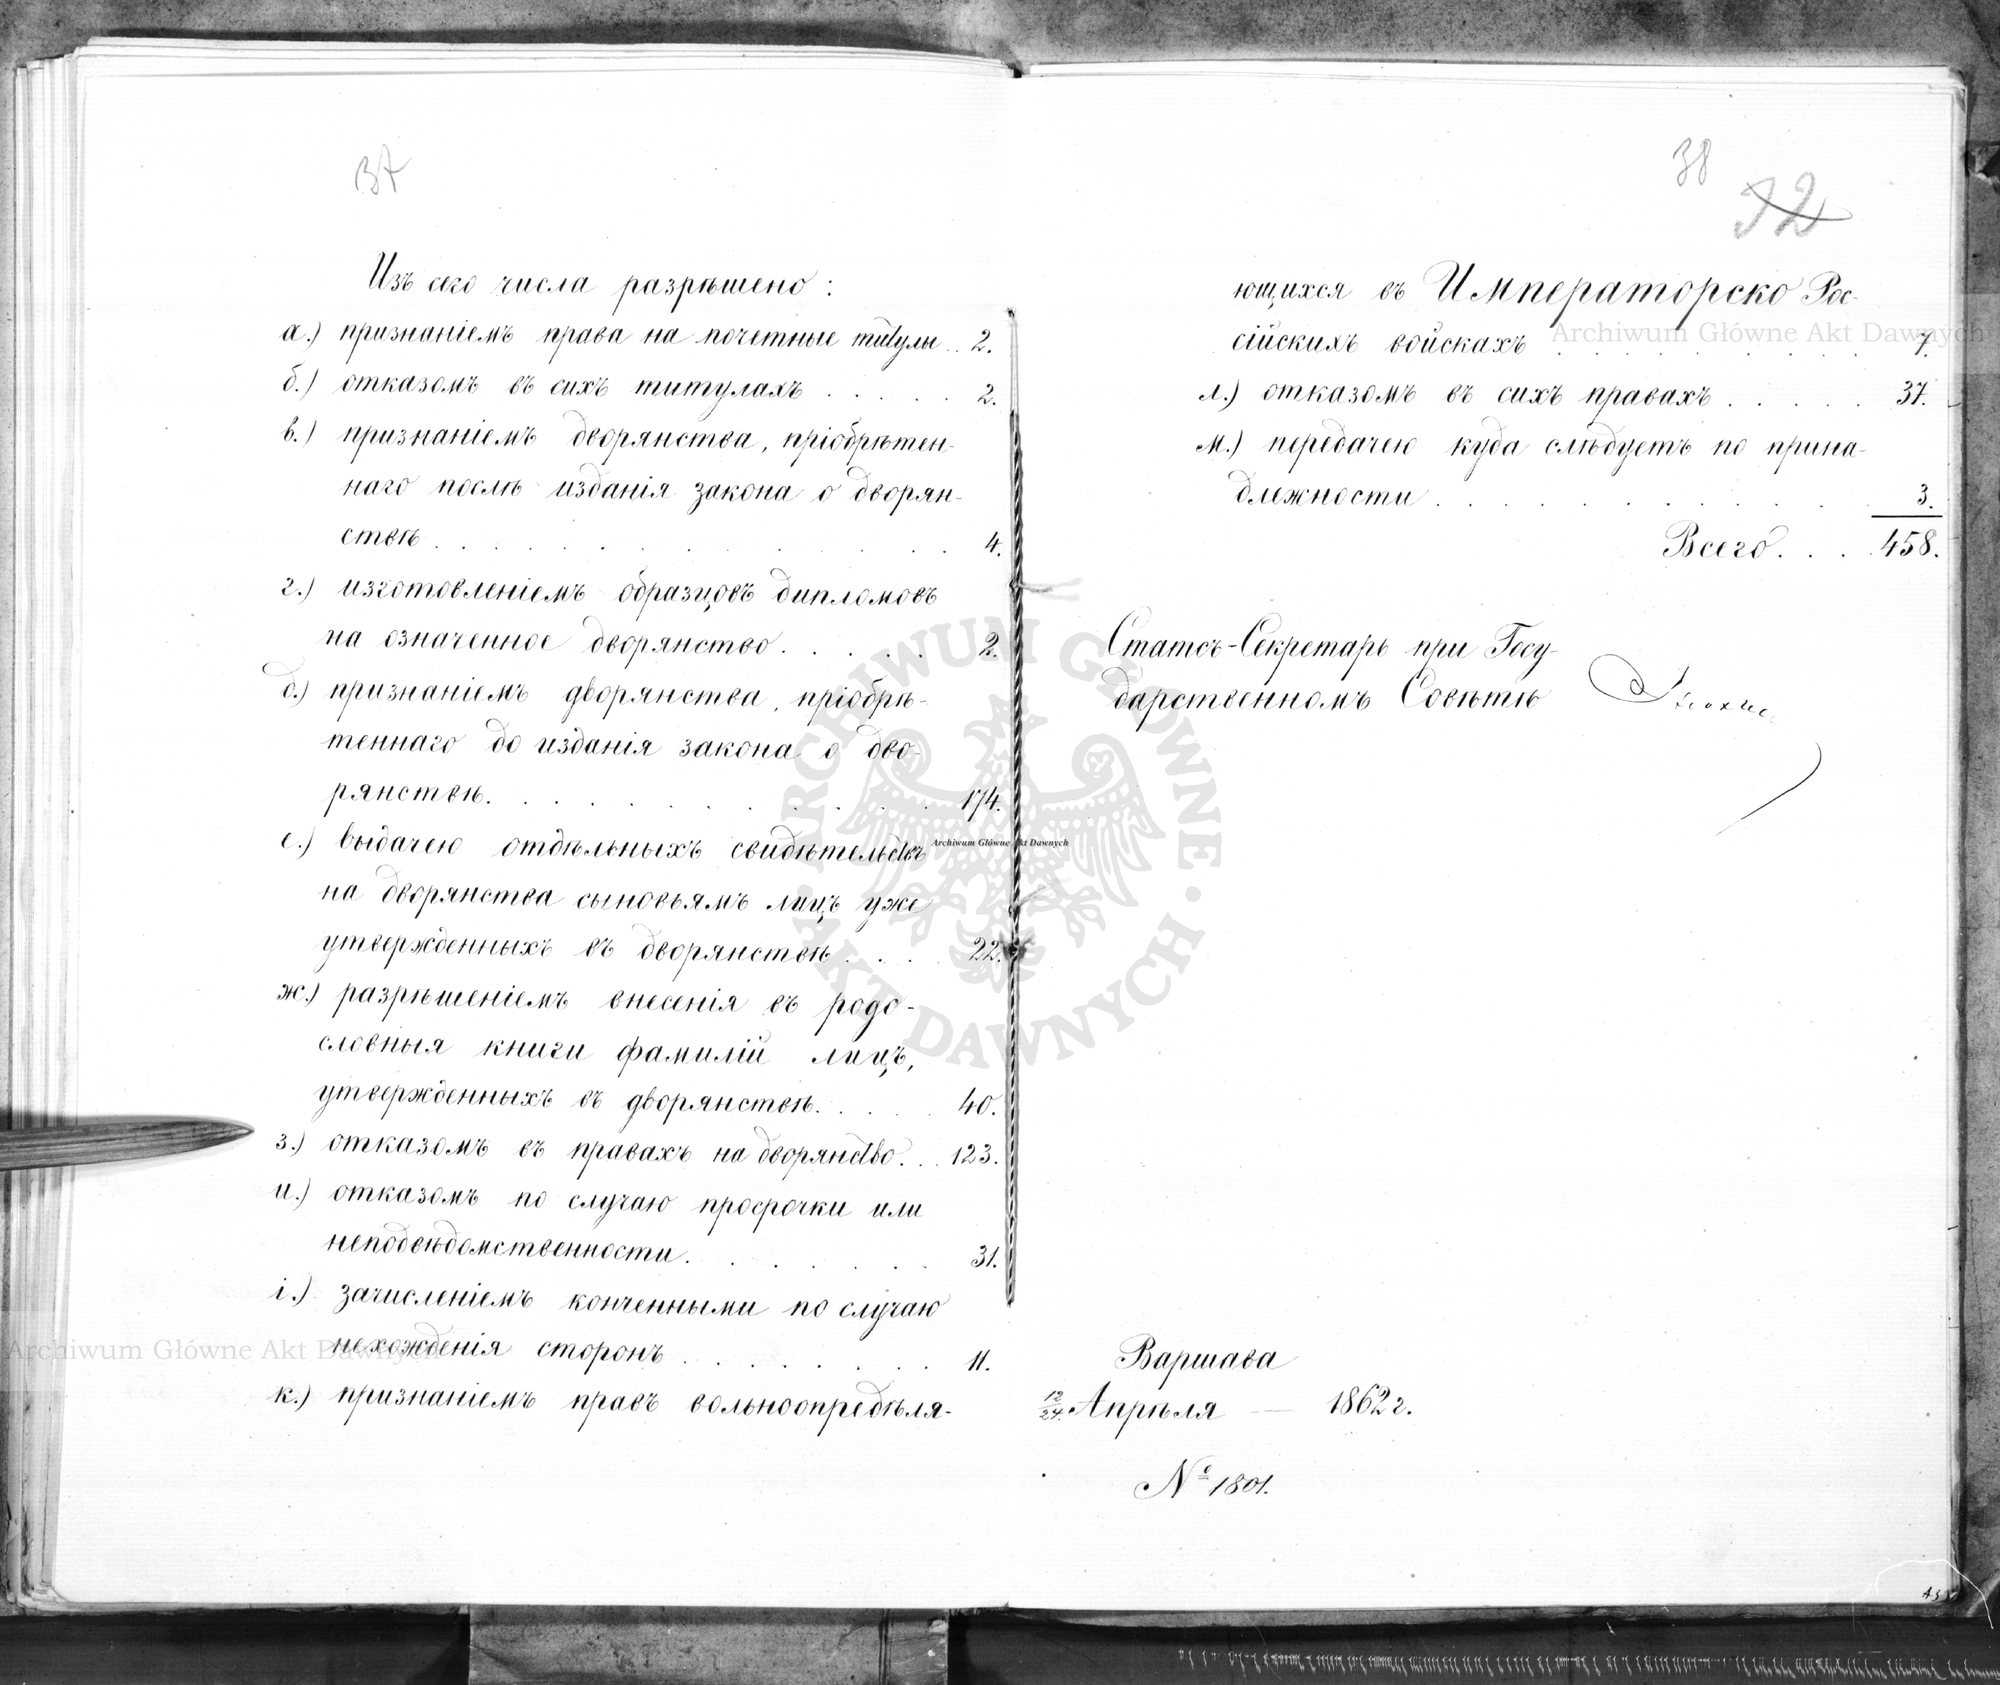 37
Изъ сего числа разрѣшено:
а.) признаніемъ права на почетные титулы .. 2.
б.) отказомъ въ сихъ титулах ..... 2.
в.) признаніемъ дворянства, пріобрѣтен-
наго послѣ изданія закона о дворян-
ствѣ ........... 4.
г.) изготовленіемъ образцовъ дипломовъ
на означенное дворянство ..... 2.
д.) признаніемъ дворянства, пріобрѣ-
теннаго до изданія закона о дво-
рянствѣ .......... 174.
е.) выдачею отдѣльныхъ свидѣтельствъ
на дворянства сыновьямъ лицъ уже
утвержденныхъ въ дворянствѣ .... 22.
ж.) разрѣшеніемъ внесенія въ родо-
словныя книги фамилій лицъ,
утвержденныхъ въ дворянствѣ ..... 40.
з.) отказомъ въ правахъ на дворянство ... 123.
и.) отказомъ по случаю просрочки или
неподвѣдомственности ....... 31.
і.) зачисленіемъ конченными по случаю
нехожденія сторонъ ....... 11.
к.) признаніемъ правъ вольноопредѣля-
38
32
ющихся въ Императорско Рос-
сійскихъ войскахъ ....... 7.
л.) отказомъ въ сихъ правахъ ..... 37.
м.) передачею куда слѣдуетъ по прина-
длежности .......... 3.
Всего .... 458.
Статсъ-Секретарь при Госу-
дарственномъ Совѣтѣ
Варшава
12/24. Апрѣля — 1862 г.
№ 1801.
Archiwum Główne Akt Dawnych
Archiwum Główne Akt Dawnych
Archiwum Główne Akt Dawnych
ARCHIWUM GŁÓWNE · AKT DAWNYCH ·